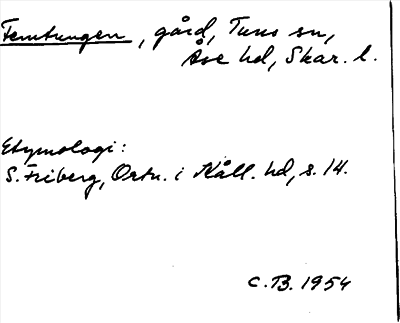 Femtungen, gård, Tuns sn,
Åse hd, Skar. l.
Etymologi:
S. Friberg, Ortn. i Kåll. hd, s. 14.
C.B. 1954